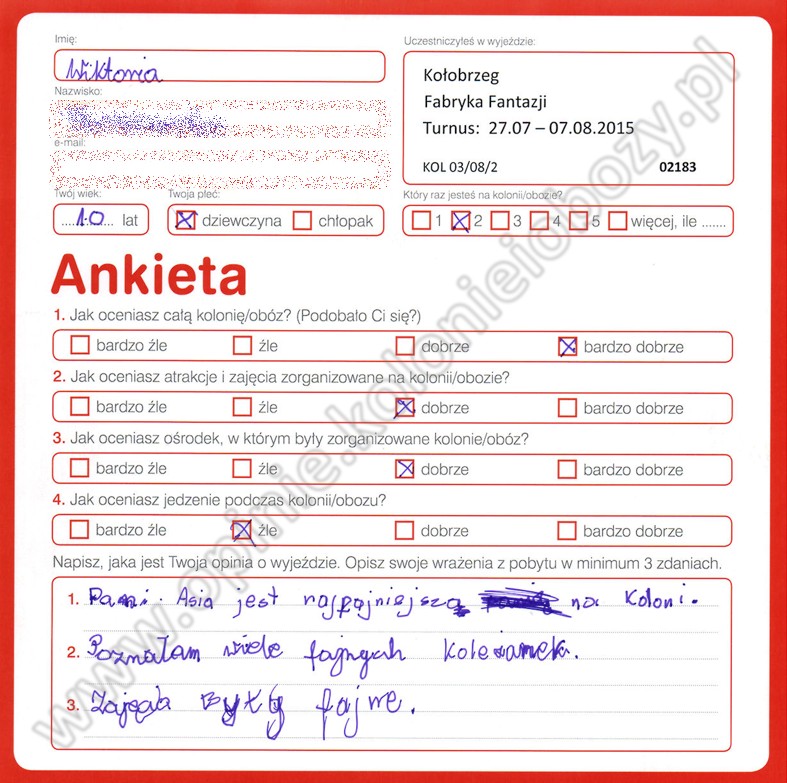 Imię:
Wiktoria
Nazwisko:
e-mail:
Twój wiek:
10 lat
Twoja płeć:
dziewczyna chłopak
Uczestniczyłeś w wyjeździe:
Kołobrzeg
Fabryka Fantazji
Turnus: 27.07 – 07.08.2015
KOL 03/08/2 02183
Który raz jesteś na kolonii/obozie?
1 2 3 4 5 więcej, ile .......
Ankieta
1. Jak oceniasz całą kolonię/obóz? (Podobało Ci się?)
bardzo źle źle dobrze bardzo dobrze
2. Jak oceniasz atrakcje i zajęcia zorganizowane na kolonii/obozie?
bardzo źle źle dobrze bardzo dobrze
3. Jak oceniasz ośrodek, w którym były zorganizowane kolonie/obóz?
bardzo źle źle dobrze bardzo dobrze
4. Jak oceniasz jedzenie podczas kolonii/obozu?
bardzo źle źle dobrze bardzo dobrze
Napisz, jaka jest Twoja opinia o wyjeździe. Opisz swoje wrażenia z pobytu w minimum 3 zdaniach.
1. Pani. Asia jest najfajniejszą na Koloni.
2. Poznałam wiele fajnych koleżanek.
3. Zajęcia były fajne.
www.opinie.kolonieiobozy.pl